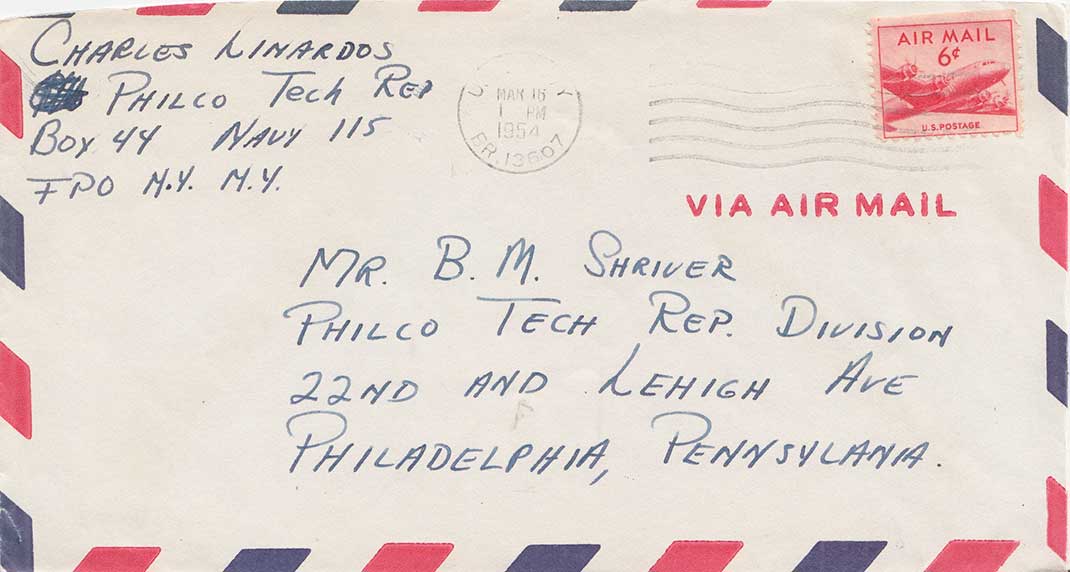 CHARLES LINARDOS
PHILCO TECH REP
BOX 44 NAVY 115
FPO N.Y. N.Y.
MAR 16
1 PM
1954
BR. 13607
AIR MAIL
6¢
U.S. POSTAGE
VIA AIR MAIL
MR. B. M. SHRIVER
PHILCO TECH REP. DIVISION
22ND AND LEHIGH AVE
PHILADELPHIA, PENNSYLVANIA.